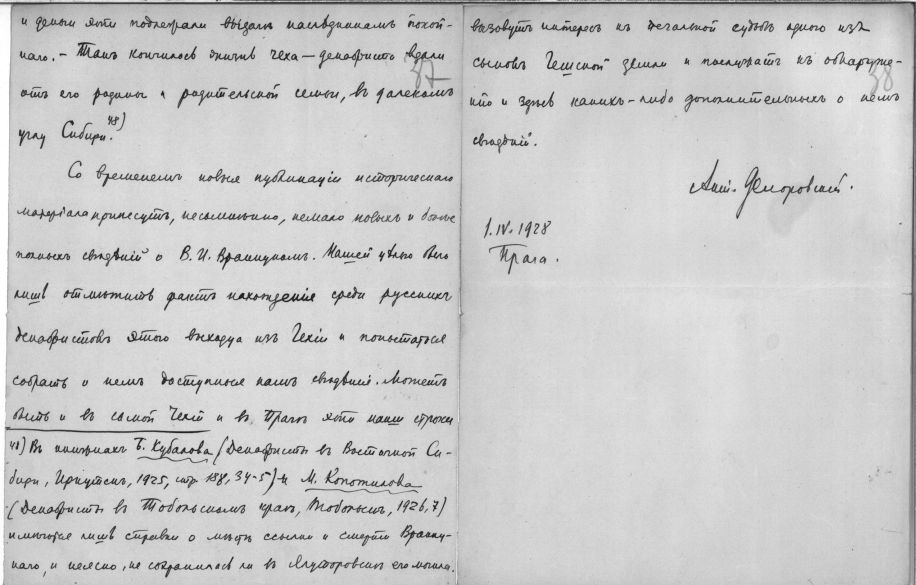 и деньги эти подлежали выдаче наслѣдникамъ покой-
наго. – Такъ кончилась жизнь чеха — декабриста вдали
37
отъ его родины и родительской семьи, въ далекомъ
углу Сибири. 48)
Со временемъ новыя публикаціи историческаго
матеріала принесутъ, несомнѣнно, немало новыхъ и болѣе
полныхъ свѣдѣній о В. И. Враницкомъ. Нашей цѣлью было
лишь отмѣтить фактъ нахожденія среди русскихъ
декабристовъ этого выходца изъ Чехіи и попытаться
собрать о немъ доступныя намъ свѣдѣнія. Можетъ
быть и въ самой Чехіи и въ Прагѣ эти наши строки
48) Въ книжкахъ Б. Кубалова (Декабристы въ Восточной Си-
бири, Иркутскъ, 1925, стр. 188, 34-5) и М. Копотилова
(Декабристы въ Тобольскомъ краѣ, Тобольскъ, 1926, 7)
имѣются лишь справки о мѣстѣ ссылки и смерти Враниц-
каго, и неясно, не сохранилась ли въ Ялуторовскѣ его могила.
вызовутъ интересъ къ печальной судьбѣ одного изъ
сыновъ Чешской земли и послужатъ къ обнаруже-
38
нію и здѣсь какихъ-либо дополнительныхъ о немъ
свѣдѣній.
Ант. Флоровский.
1.IV.1928
Прага.